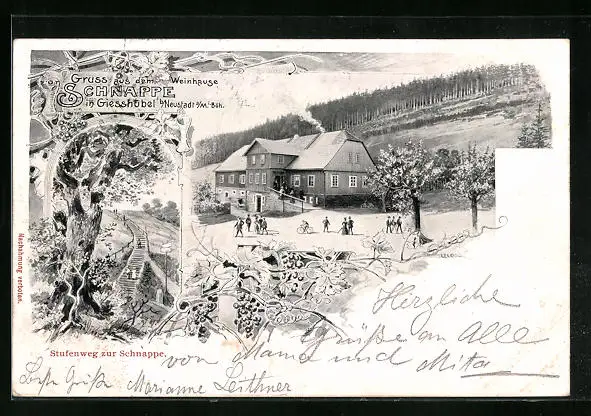 Gruss aus dem Weinhause
SCHNAPPE
in Giesshübel b/Neustadt a/M.-Böh.
Nachahmung verboten.
Stufenweg zur Schnappe.
Herzliche
Grüße an Alle
von Mama und Mitzi
Beste Grüße Marianne Leithner